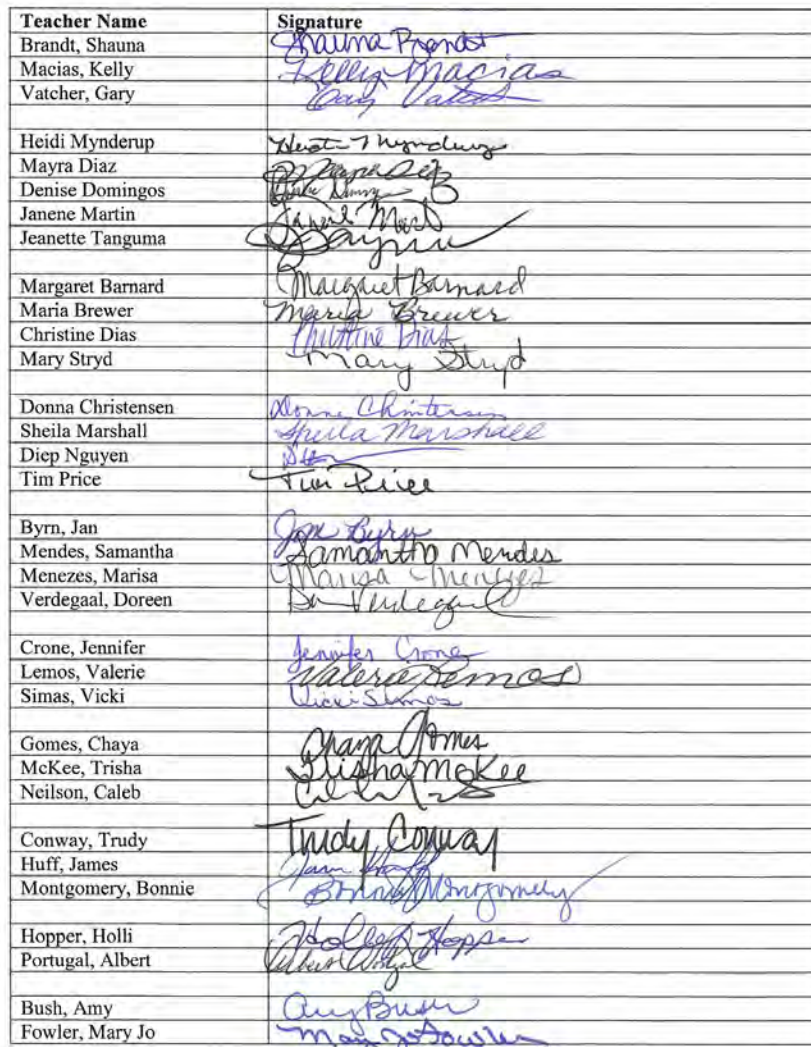 Teacher Name Signature
Brandt, Shauna Shauna Brandt
Macias, Kelly Kelly Macias
Vatcher, Gary Gary
Heidi Mynderup Heidi Mynderup
Mayra Diaz Mayra Diaz
Denise Domingos
Janene Martin Janene Mart
Jeanette Tanguma
Margaret Barnard Margaret Barnard
Maria Brewer Maria Brewer
Christine Dias Christine Dias
Mary Stryd Mary Stryd
Donna Christensen Donna Christensen
Sheila Marshall Sheila Marshall
Diep Nguyen
Tim Price Tim Price
Byrn, Jan Jan Byrn
Mendes, Samantha Samantha Mendes
Menezes, Marisa Marisa Menezes
Verdegaal, Doreen Verdegaal
Crone, Jennifer Jennifer Crone
Lemos, Valerie Valerie Lemos
Simas, Vicki Vicki Simas
Gomes, Chaya Chaya Gomes
McKee, Trisha Trisha McKee
Neilson, Caleb
Conway, Trudy Trudy Conway
Huff, James James Huff
Montgomery, Bonnie Bonnie Montgomery
Hopper, Holli Holli Hopper
Portugal, Albert Albert Portugal
Bush, Amy Amy Bush
Fowler, Mary Jo Mary Jo Fowler